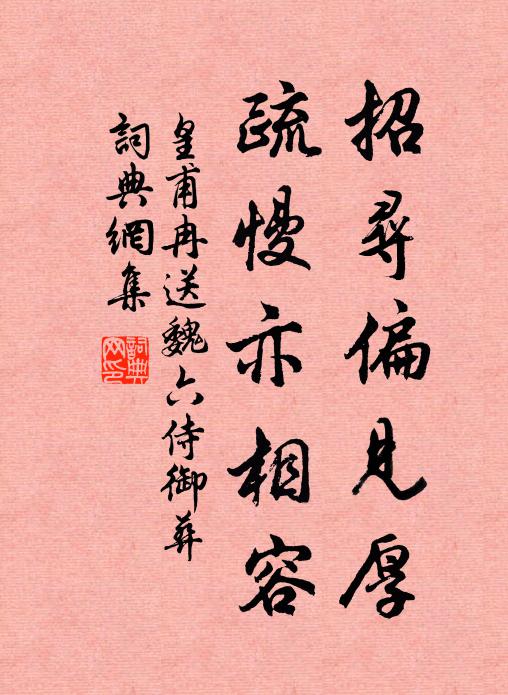 招尋偏見厚
疏慢亦相容
皇甫冉送魏六侍御葬
詞典網集
詞典網印